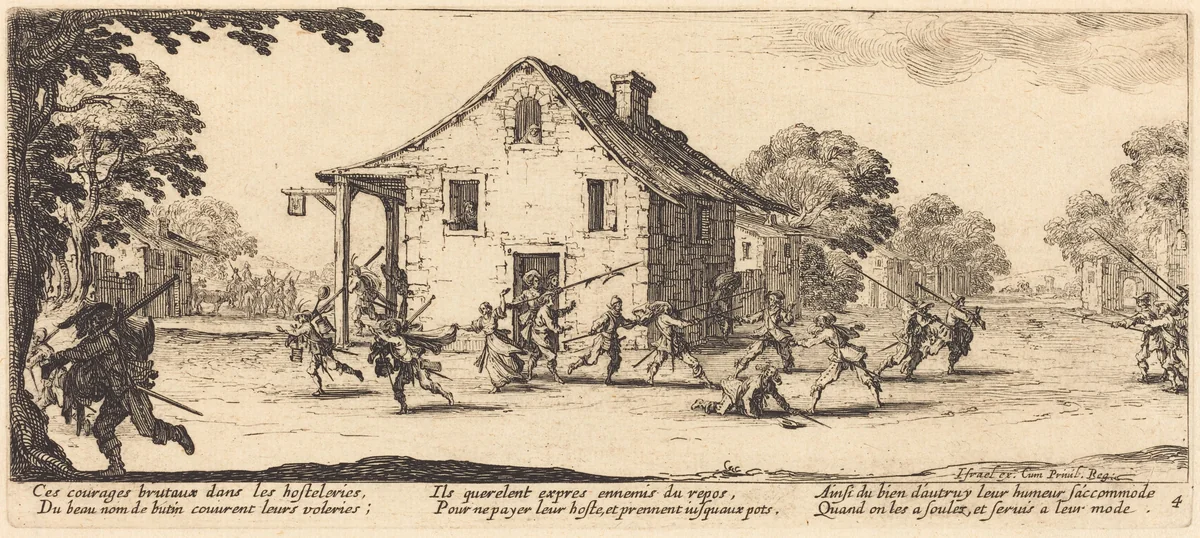 Israel ex. Cum Privil. Reg.
Ces courages brutaux dans les hosteleries,
Du beau nom de butin couurent leurs voleries ;
Ils querelent expres ennemis du repos,
Pour ne payer leur hoste, et prennent iusquaux pots.
Ainsi du bien d'autruy leur humeur s'accommode
Quand on les a soulez, et seruis a leur mode .
4